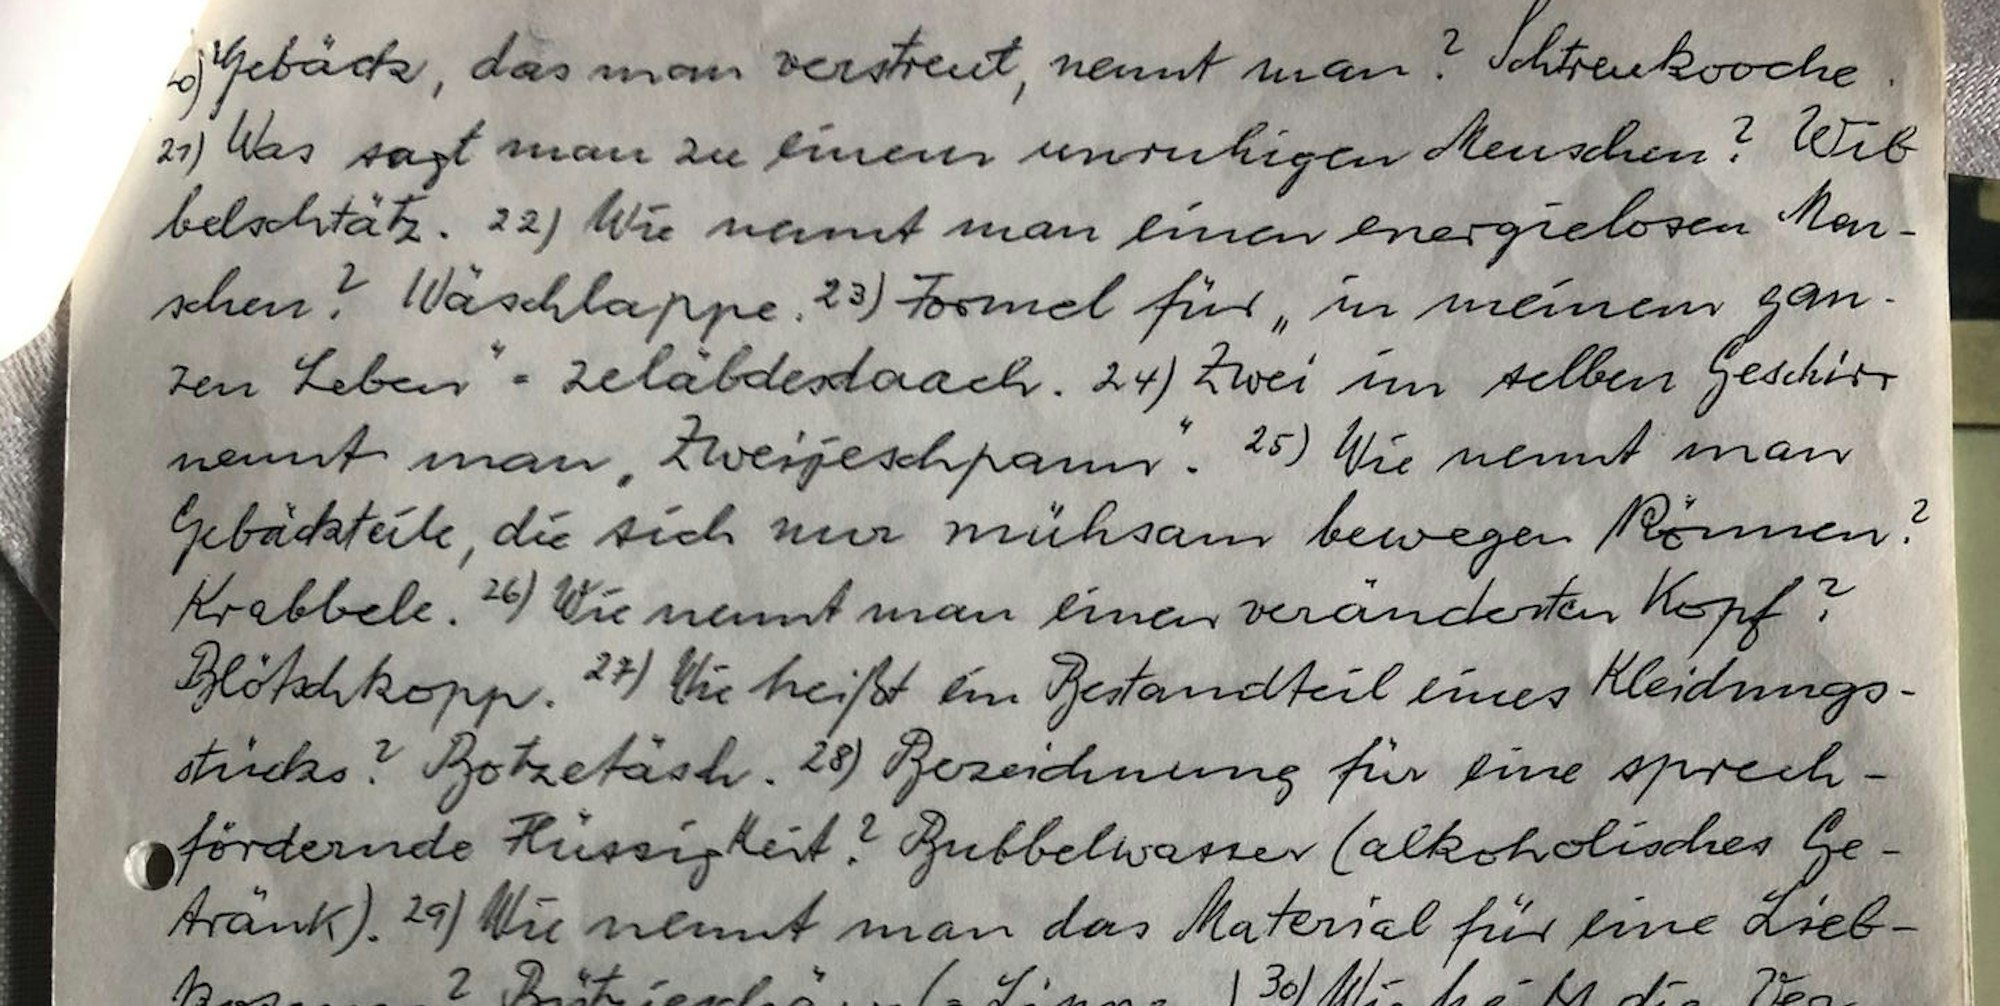 20) Gebäck, das man verstreut, nennt man? Schtreukooche.
21) Was sagt man zu einem unruhigen Menschen? Wib
belschtätz. 22) Wie nennt man einen energielosen Men-
schen? Wäschlappe. 23) Formel für „in meinem gan-
zen Leben" = zeläbdesdaach. 24) Zwei im selben Geschirr
nennt man „Zweijeschpann". 25) Wie nennt man
Gebäckteile, die sich nur mühsam bewegen können?
Krabbele. 26) Wie nennt man einen veränderten Kopf?
Blötschkopp. 27) Wie heißt ein Bestandteil eines Kleidungs-
stücks? Botzetäsh. 28) Bezeichnung für eine sprech-
fördernde Flüssigkeit? Bubbelwasser (alkoholisches Ge-
tränk). 29) Wie nennt man das Material für eine Lieb-
? 30)